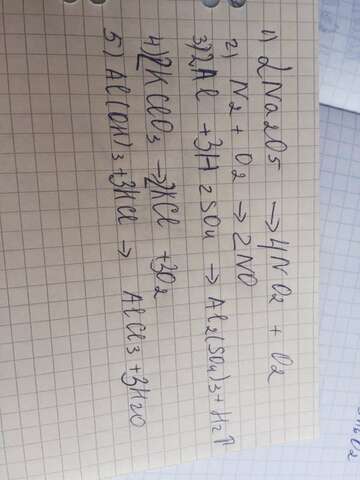 1) 2Na2O5 → 4NO2 + O2
2) N2 + O2 → 2NO
3) 2Al + 3H2SO4 → Al2(SO4)3 + H2↑
4) 2KClO3 → 2KCl + 3O2
5) Al(OH)3 + 3HCl → AlCl3 + 3H2O